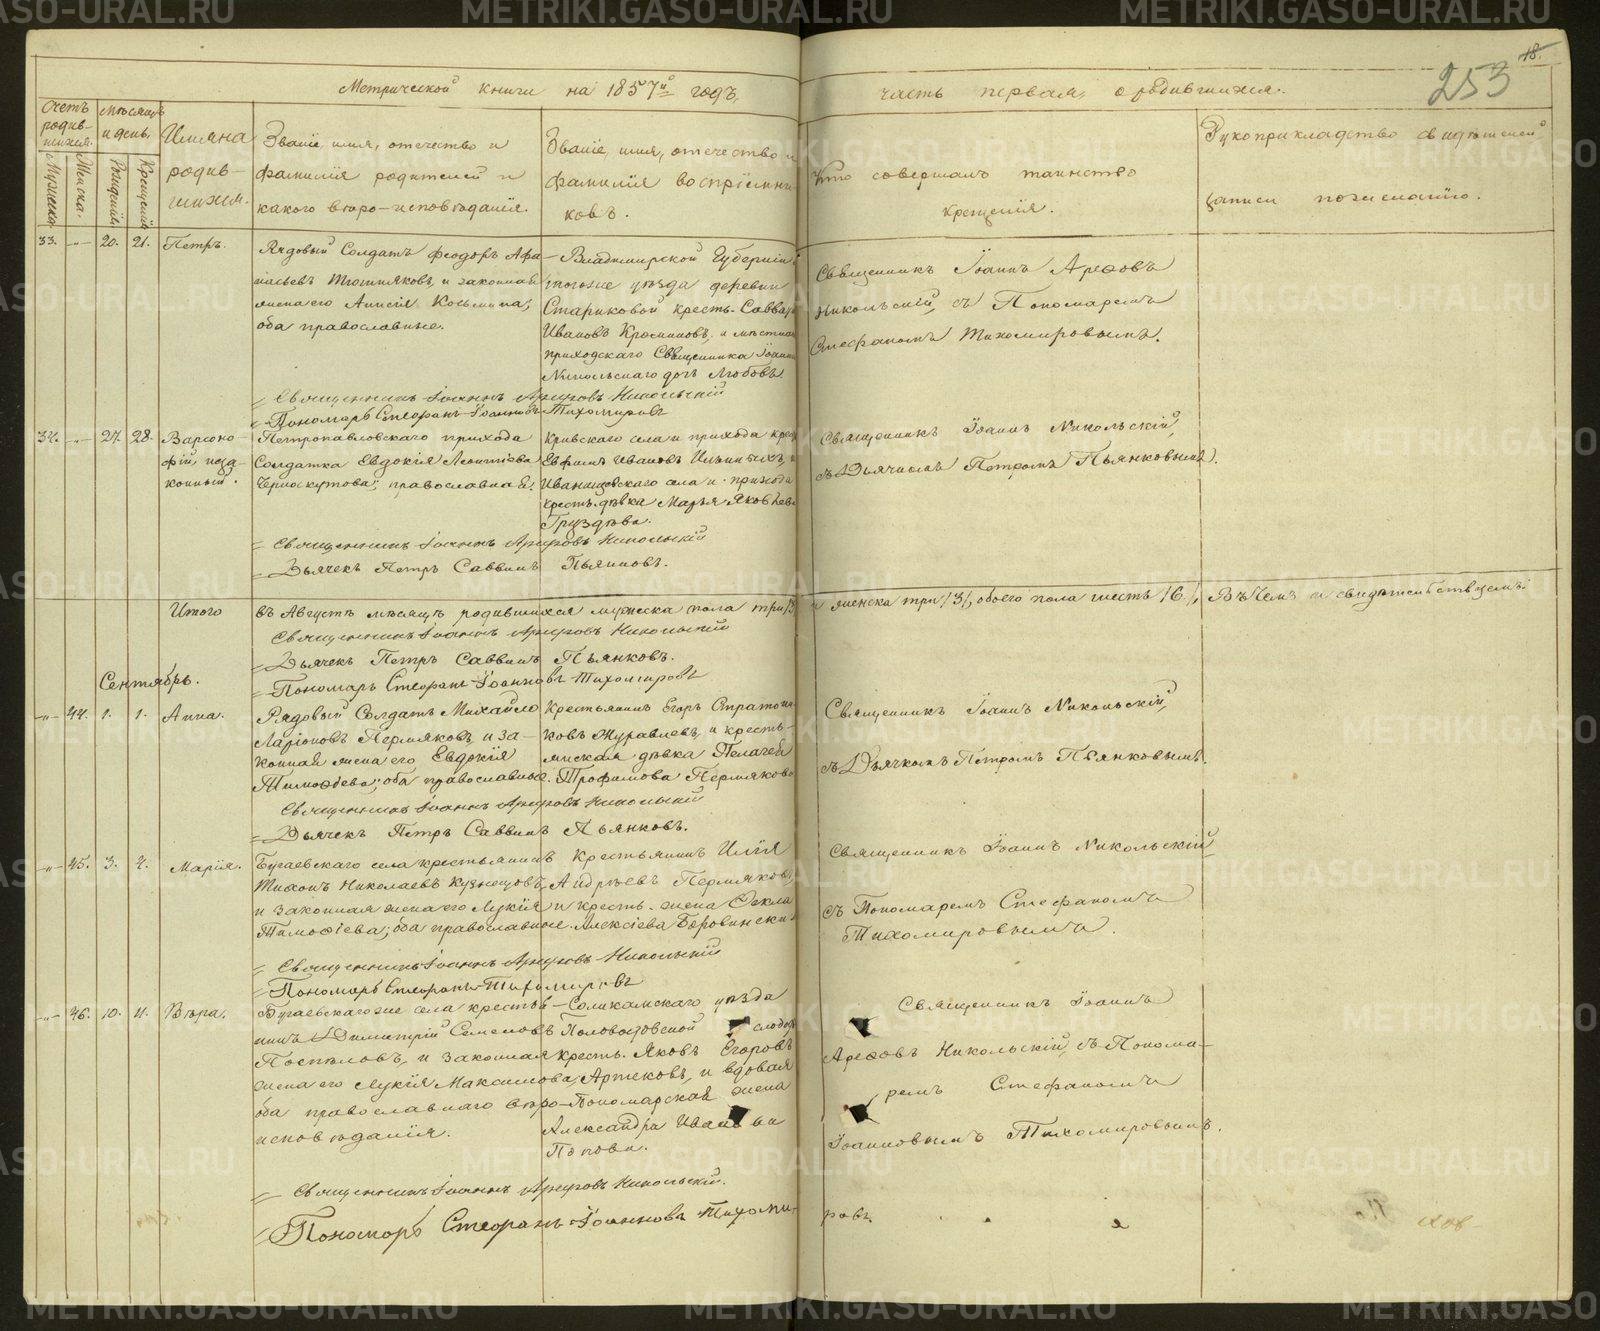 Метрической книги на 1857й годъ,
часть первая, о родившихся.
253
18.
Счетъ родив-
шихся.
Мужеска.
Женска.
Мѣсяцъ
и день.
Рожденія.
Крещенія.
Имяна
родив-
шихся.
Званіе, имя, отечество и
фамилія родителей и
какого вѣро-исповѣданія.
Званіе, имя, отечество и
фамилія воспріемни-
ковъ.
Кто совершалъ таинство
крещенія.
Рукоприкладство свидѣтелей
записи по желанію.
33. -"- 20. 21. Петръ.
Рядовый Солдатъ Феодоръ Афа-
насьевъ и законная
жена его Анисія Козьмина,
оба православные.
Владимирской Губерніи
тогоже уѣзда деревни
Стариковой кресть. Савва
Ивановъ и мѣстнаго
приходскаго Священника Іоанна
Никольскаго дочь Любовь
Священникъ Іоаннъ Арефовъ
Никольскій, съ Пономаремъ
Стефаномъ Тихомировымъ.
Священникъ Іоаннъ Арефовъ Никольскій
Пономарь Стефанъ Іоанновъ Тихомировъ
34. -"- 27. 28. Варсоно-
фій, неза-
конный.
Петропавловскаго прихода
Солдатка Евдокія Леонтіева
Черноскутова, православная.
Кривскаго села и прихода крест.
Евфимъ Ивановъ Ильиныхъ, и
Иванищевскаго села и прихода
кресть. дѣвка Марья Яковлева
Груздева.
Священникъ Іоаннъ Никольскій,
съ Дьячкомъ Петромъ Пьянковымъ.
Священникъ Іоаннъ Арефовъ Никольскій
Дьячекъ Петръ Саввинъ Пьянковъ.
Итого въ Августѣ мѣсяцѣ родившихся мужеска пола три /3/ и женска три /3/, обоего пола шесть /6/, Въ чемъ и свидѣтельствуемъ:
Священникъ Іоаннъ Арефовъ Никольскій
Дьячекъ Петръ Саввинъ Пьянковъ.
Пономарь Стефанъ Іоанновъ Тихомировъ
Сентябрь.
-"- 44. 1. 1. Анна.
Рядовый Солдатъ Михайло
Ларіоновъ Пермяковъ, и за-
конная жена его Евдокія
Тимофѣева; оба православные.
Крестьянинъ Егоръ
ковъ Журавлевъ, и кресть-
янская дѣвка Пелагея
Трофимова Пермякова
Священникъ Іоаннъ Никольскій,
съ Дьячкомъ Петромъ Пьянковымъ.
Священникъ Іоаннъ Арефовъ Никольскій
Дьячекъ Петръ Саввинъ Пьянковъ.
-"- 45. 3. 4. Марія.
Бугаевскаго села крестьянинъ
Тихонъ Николаевъ Кузнецовъ,
и законная жена его Лукія
Тимофіева; оба православные.
Крестьянинъ Илія
Андреевъ Пермяковъ,
и кресть. жена Фекла
Алексіева
Священникъ Іоаннъ Никольскій
съ Пономаремъ Стефаномъ
Тихомировымъ.
Священникъ Іоаннъ Арефовъ Никольскій
Пономарь Стефанъ Тихомировъ
-"- 46. 10. 11. Вѣра.
Бугаевскагоже села крестья-
нинъ Димитрій Семеновъ
Поспѣловъ, и законная
жена его Лукія Максимова,
оба православнаго вѣро-
исповѣданія.
Соликамскаго уѣзда
Половодовской слобод
кресть. Яковъ Егоровъ
Артековъ, и вдовая
Пономарская жена
Александра Иванова
Попова.
Священникъ Іоаннъ
Арефовъ Никольскій, съ Понома-
ремъ Стефаномъ
Іоанновымъ Тихомировымъ.
Священникъ Іоаннъ Арефовъ Никольскій.
Пономарь Стефанъ Іоанновъ Тихоми-
ровъ
METRIKI.GASO-URAL.RU